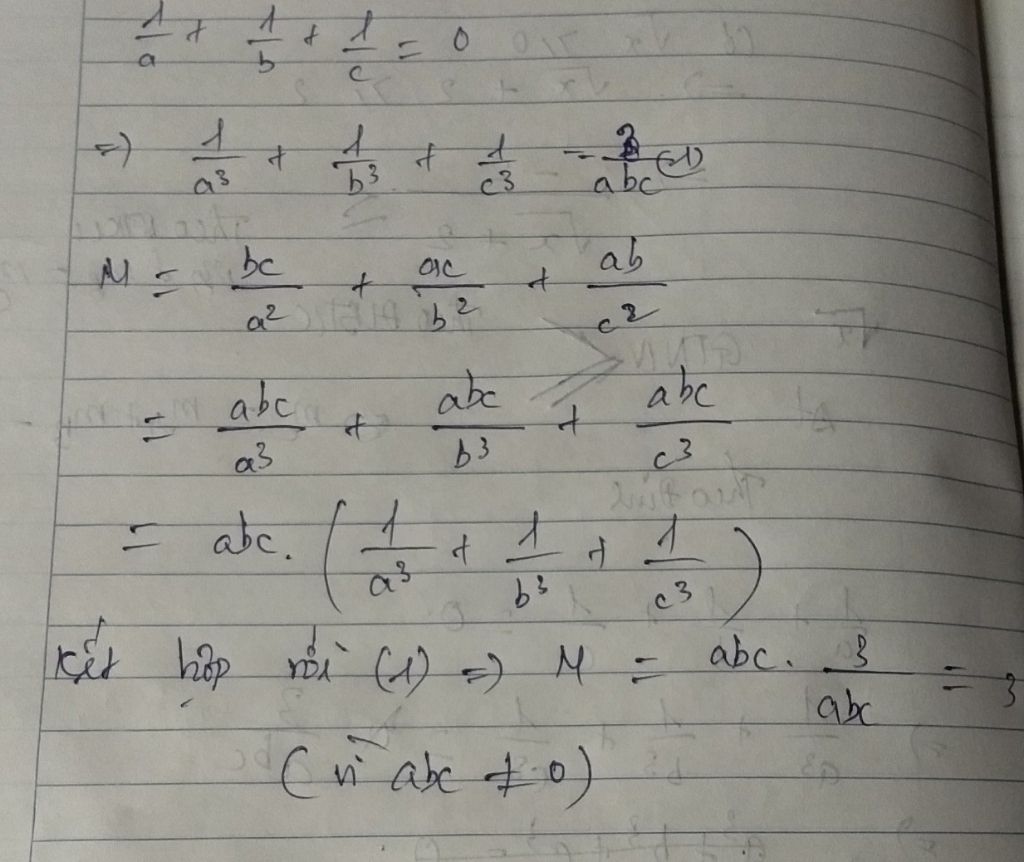 1/a + 1/b + 1/c = 0
=> 1/a³ + 1/b³ + 1/c³ = 3/abc (1)
M = bc/a² + ac/b² + ab/c²
= abc/a³ + abc/b³ + abc/c³
= abc. (1/a³ + 1/b³ + 1/c³)
Kết hợp với (1) => M = abc. 3/abc = 3
(vì abc ≠ 0)